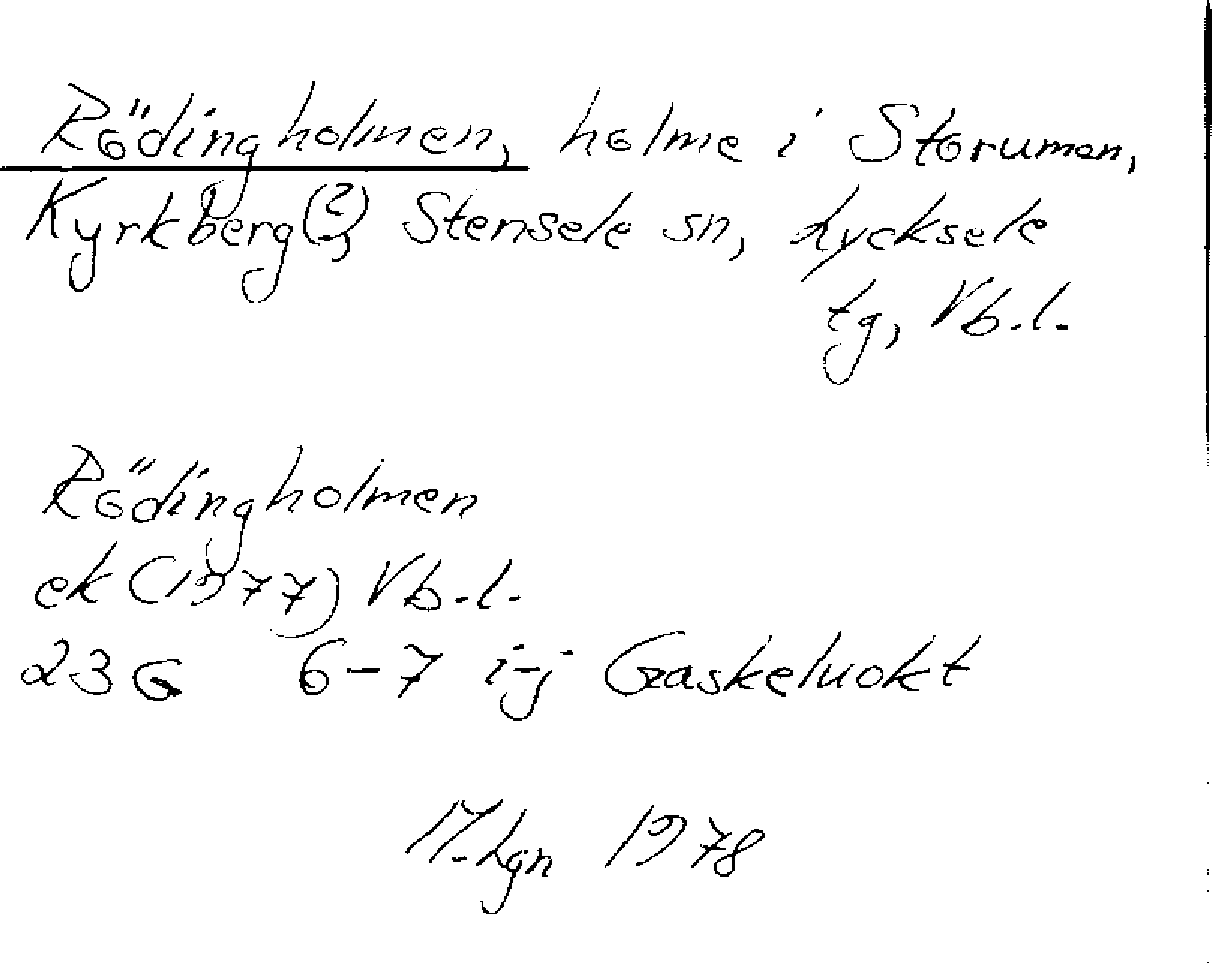 Rödingholmen, holme i Storuman,
Kyrkberg(?), Stensele sn, Lycksele
tg, Vb.l.
Rödingholmen
ek (1977) Vb.l.
23G 6-7 i-j Gaskeluokt
M.Lgn 1978